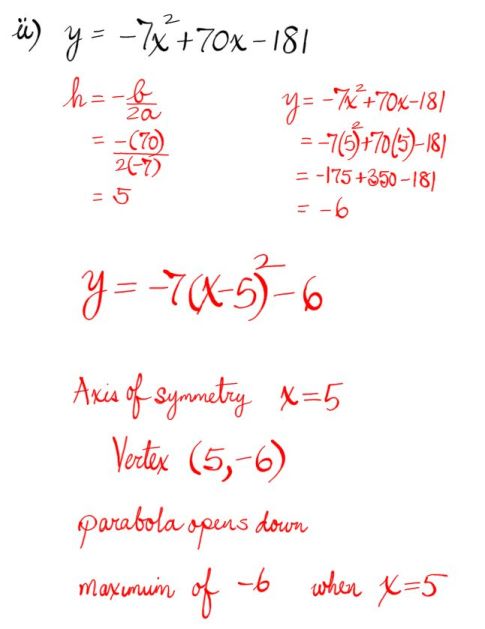 ii) y = -7x²+70x-181
h = -b/2a
= -(70)/2(-7)
= 5
y = -7x²+70x-181
= -7(5)²+70(5)-181
= -175+350-181
= -6
y = -7(x-5)²-6
Axis of symmetry x=5
Vertex (5,-6)
parabola opens down
maximum of -6 when x=5